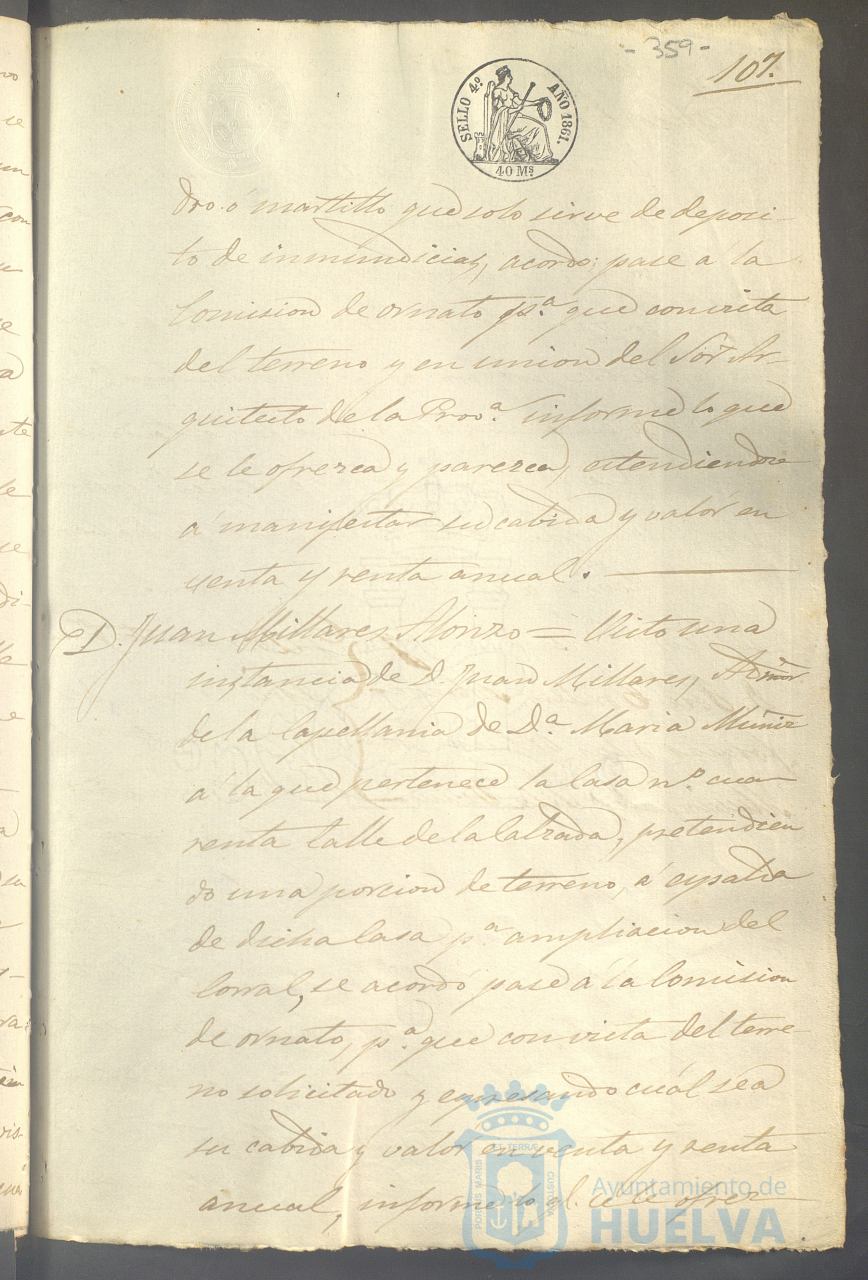 - 359 -
107.
SELLO 4º AÑO 1861.
40 Ms
dro ó martillo que solo sirve de deposi-
to de inmundicias, acordo: pase á la
Comision de ornato pª. que con vista
del terreno y en union del Sor Ar-
quitecto de la Provª. informe lo que
se le ofrezca y parezca, estendiendose
á manifestar su cabida y valor en
venta y renta anual. —
D. Juan Millares Alonzo = Visto una
instancia de D. Juan Millares, Admor
de la Capellania de Dª Maria Muñiz
á la que pertenece la Casa nº cua-
renta Calle de la Calzada, pretendien
do una porcion de terreno, á espalda
de dicha Casa pª ampliacion del
Corral, se acordó pase á la Comision
de ornato, pª. que con vista del terre-
no solicitado y espresando cuál sea
su cabida y valor en venta y renta
anual, informe lo ql. se le ofrez-
PORTUS MARIS ET TERRÆ CUSTODIA
Ayuntamiento de
HUELVA